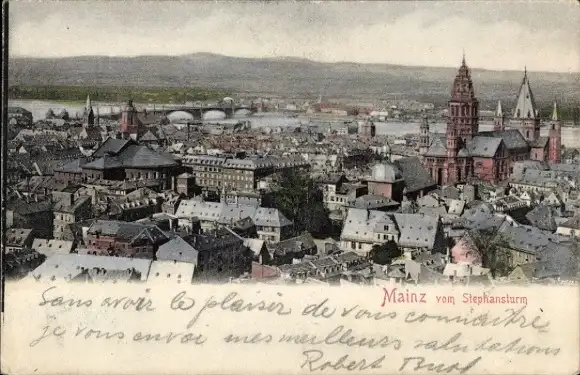 Mainz vom Stephansturm
Sans avoir le plaisir de vous connaître,
je vous envoi mes meilleurs salutations
Robert